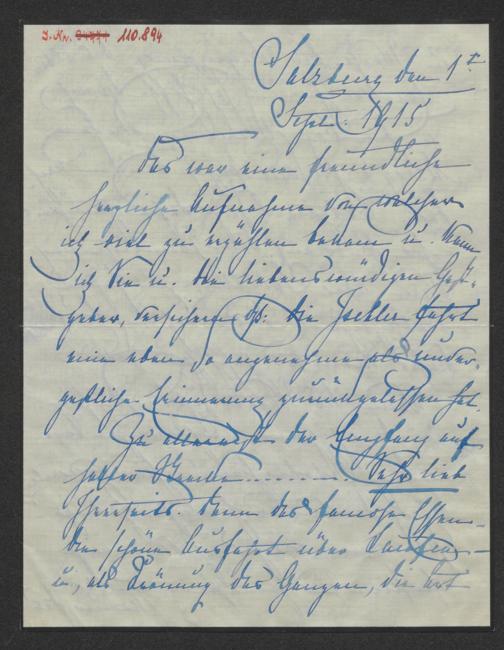 I. Nr. 110.894
Salzburg den 1t
Sept. 1915
Das war eine freundliche
herzliche Aufnahme von welcher
ich viel zu erzählen bekam u. kann
ich Sie u. die liebenswürdigen Gast-
geber, versichern daß die Ischler Fahrt
eine eben so angenehme als unver-
geßliche Erinnerung zurückgelassen hat.
Zu allererst der Empfang auf
halber Strecke ......... Sehr lieb
Ihrerseits. Dann das famose Essen –
die schöne Ausfahrt über Lauffen –
u., als Krönung des Ganzen, die Art